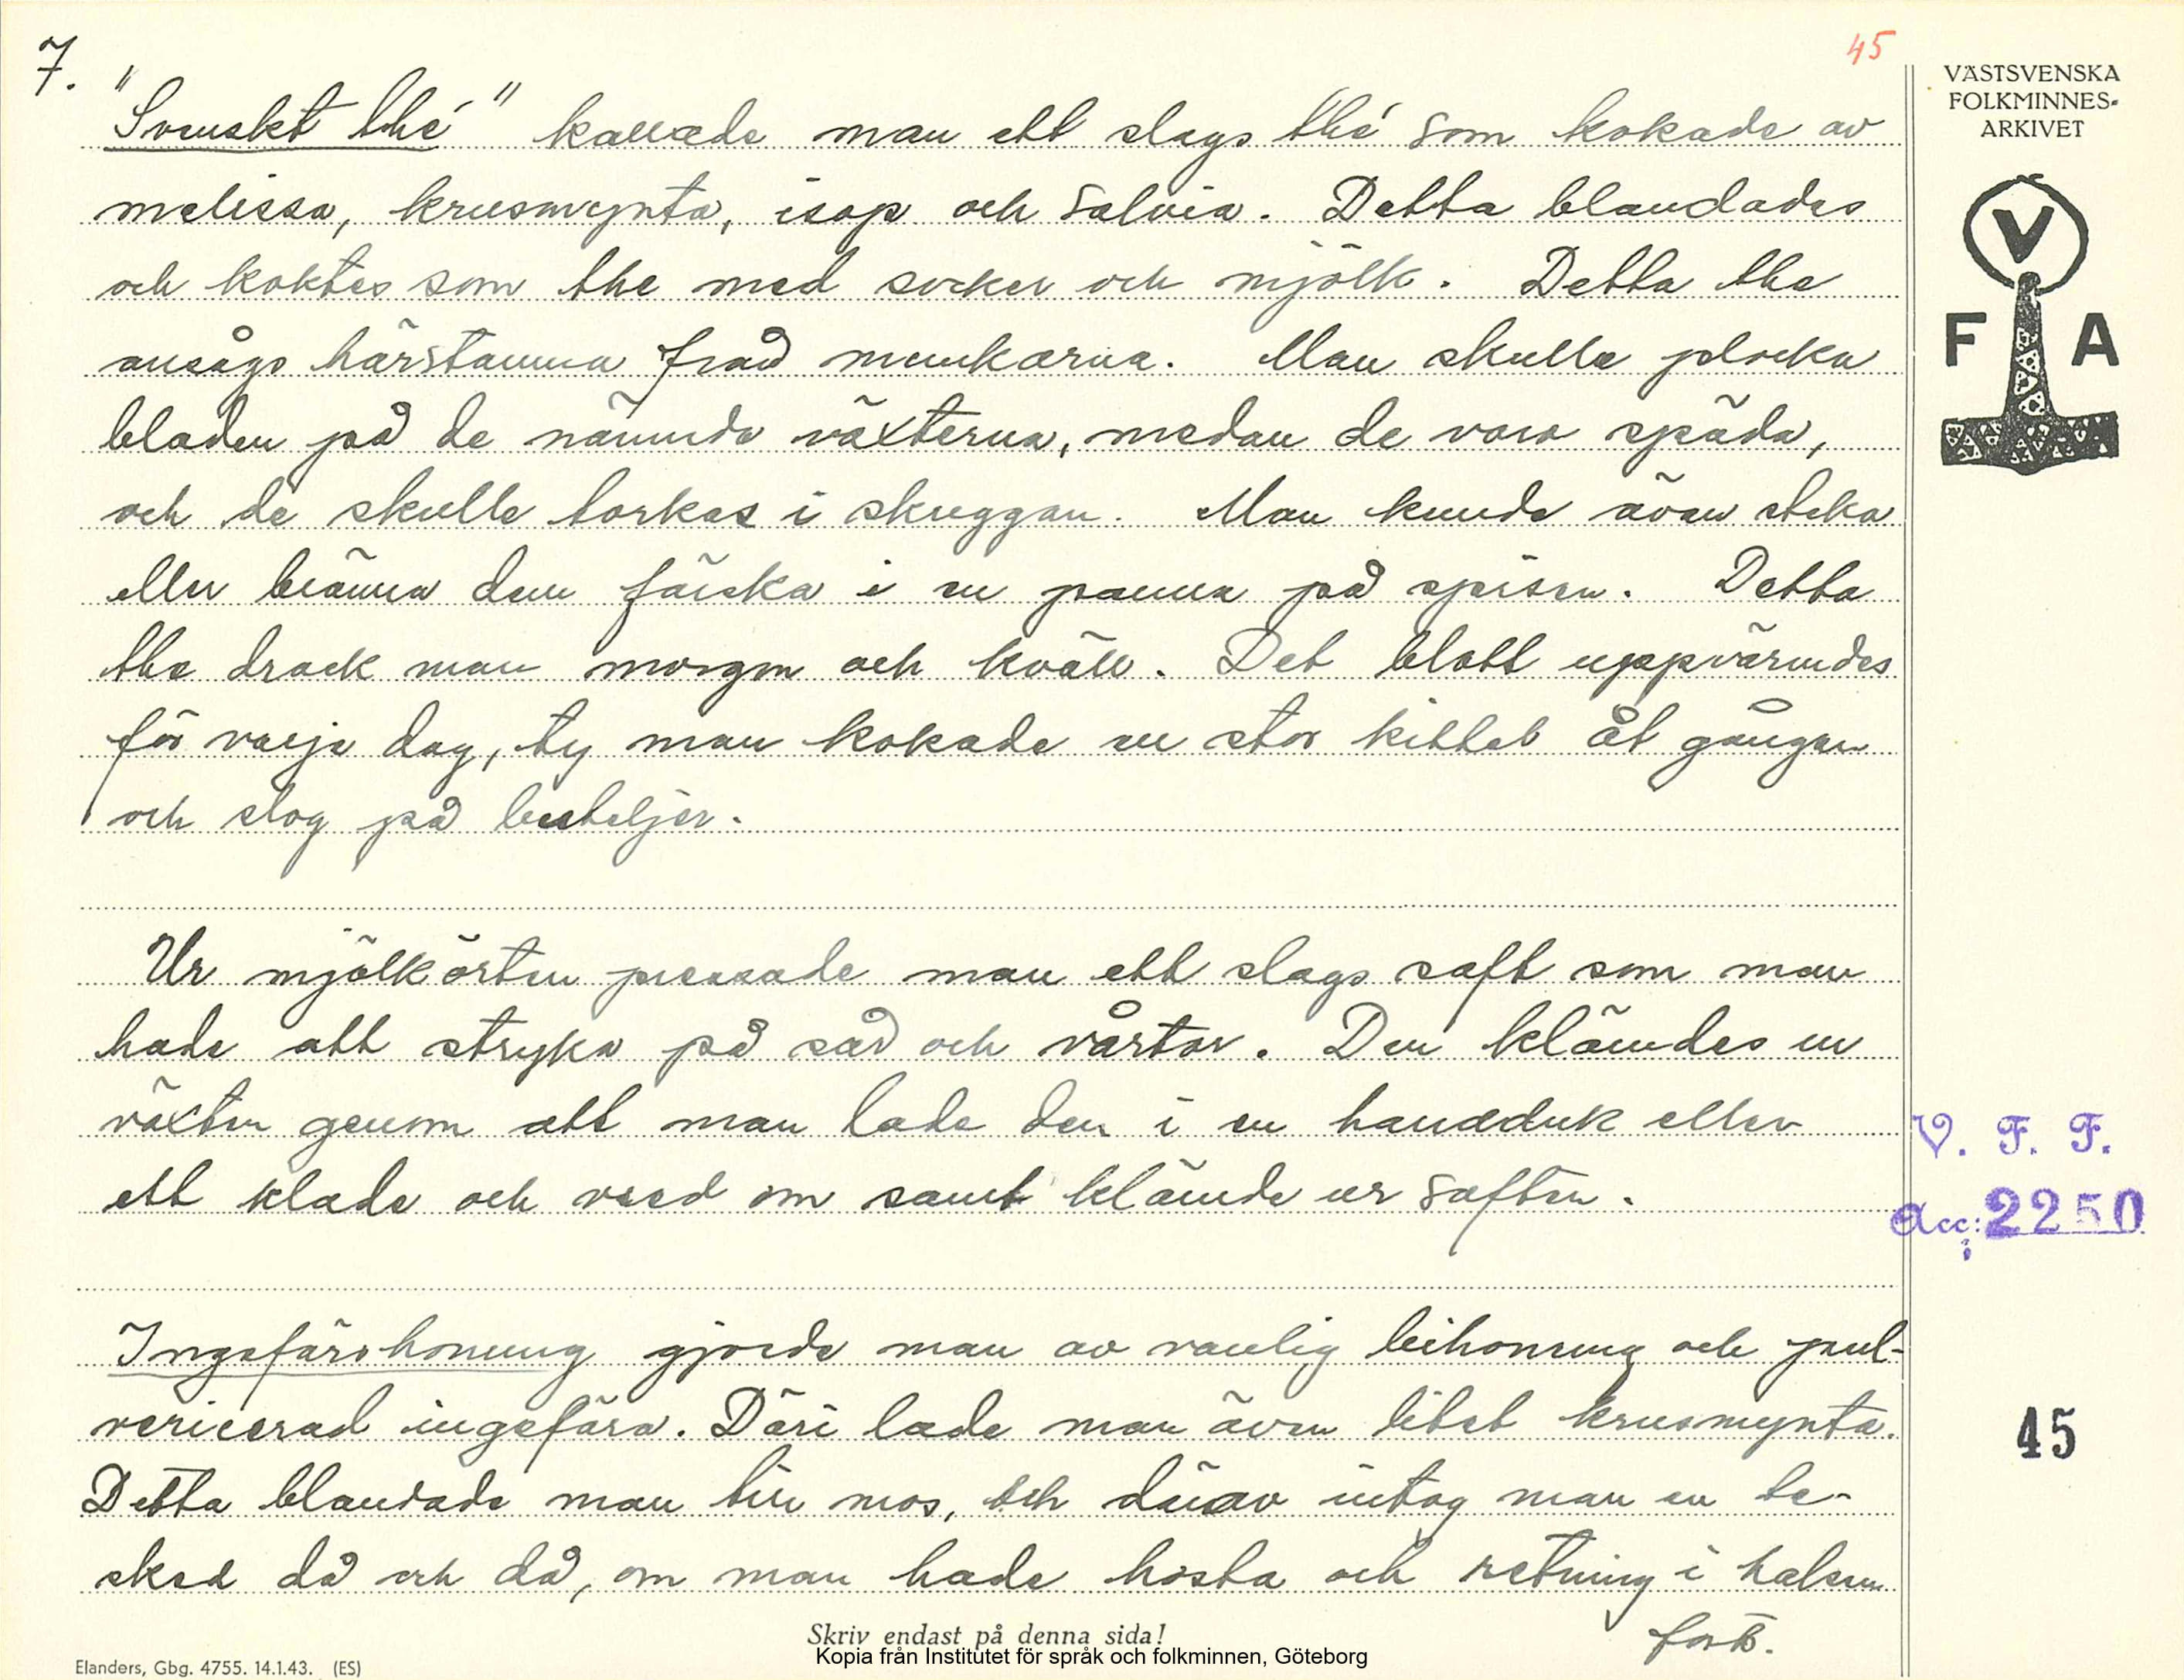 7.
45
"Svenskt thé" kallade man ett slags thé som kokade av
melissa, krusmynta, isop och salvia. Detta blandades
och koktes som the med socker och mjölk. Detta the
ansågs härstamma från munkarna. Man skulle plocka
bladen på de nämnda växterna, medan de voro späda,
och de skulle torkas i skuggan. Man kunde även steka
eller bränna dem färska i en panna på spisen. Detta
the drack man morgon och kväll. Det blott uppvärmdes
för varje dag, ty man kokade en stor kittel åt gången
och slog på buteljer.
Ur mjölkörten pressade man ett slags saft som man
hade att stryka på sår och vårtor. Den klämdes ur
växten genom att man lade den i en handduk eller
ett kläde och vred om samt klämde ur saften.
Ingefärshonung gjorde man av vanlig bihonung och pul-
vericerad ingefära. Däri lade man även litet krusmynta.
Detta blandade man till mos, och därav intog man en te-
sked då och då, om man hade hosta och retning i halsen
forts.
VÄSTSVENSKA
FOLKMINNES-
ARKIVET
V
F A
V. F. F.
Acc: 2250
45
Skriv endast på denna sida!
Kopia från Institutet för språk och folkminnen, Göteborg
Elanders, Gbg. 4755. 14.1.43. (ES)